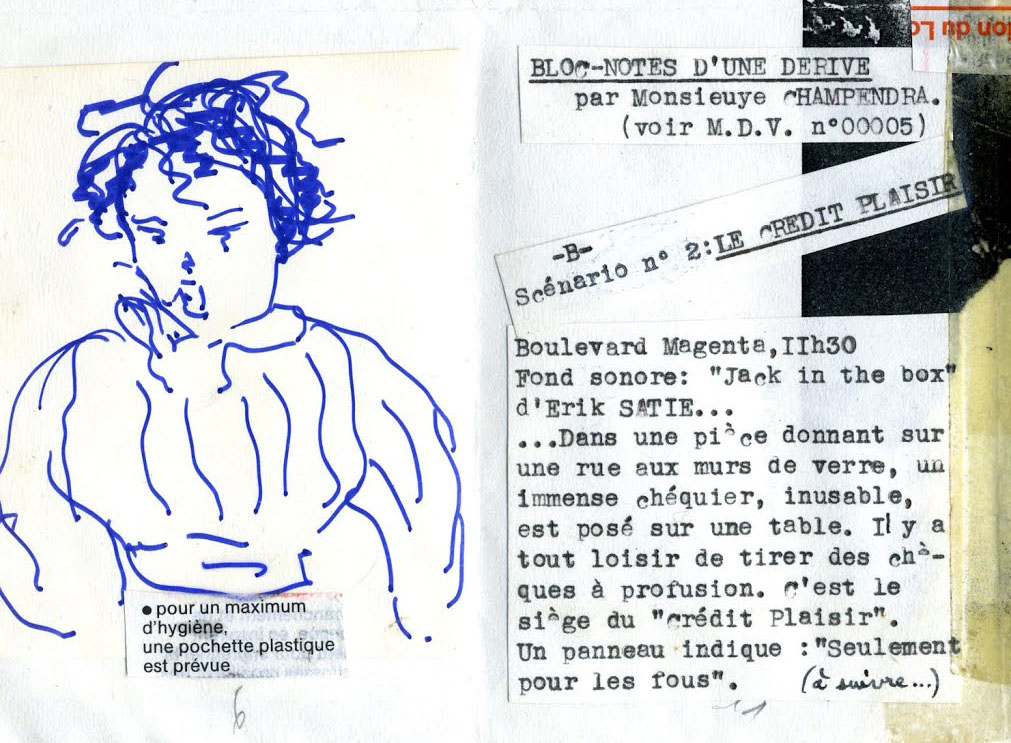 ● pour un maximum
d'hygiène,
une pochette plastique
est prévue
6
BLOC-NOTES D'UNE DERIVE
par Monsieuye CHAMPENDRA.
(voir M.D.V. n°00005)
-B-
Scénario n° 2:LE CREDIT PLAISIR
Boulevard Magenta,IIh30
Fond sonore: "Jack in the box"
d'Erik SATIE...
...Dans une pièce donnant sur
une rue aux murs de verre, un
immense chéquier, inusable,
est posé sur une table. Il y a
tout loisir de tirer des chè-
ques à profusion. C'est le
siège du "Crédit Plaisir".
Un panneau indique :"Seulement
pour les fous". (à suivre...)